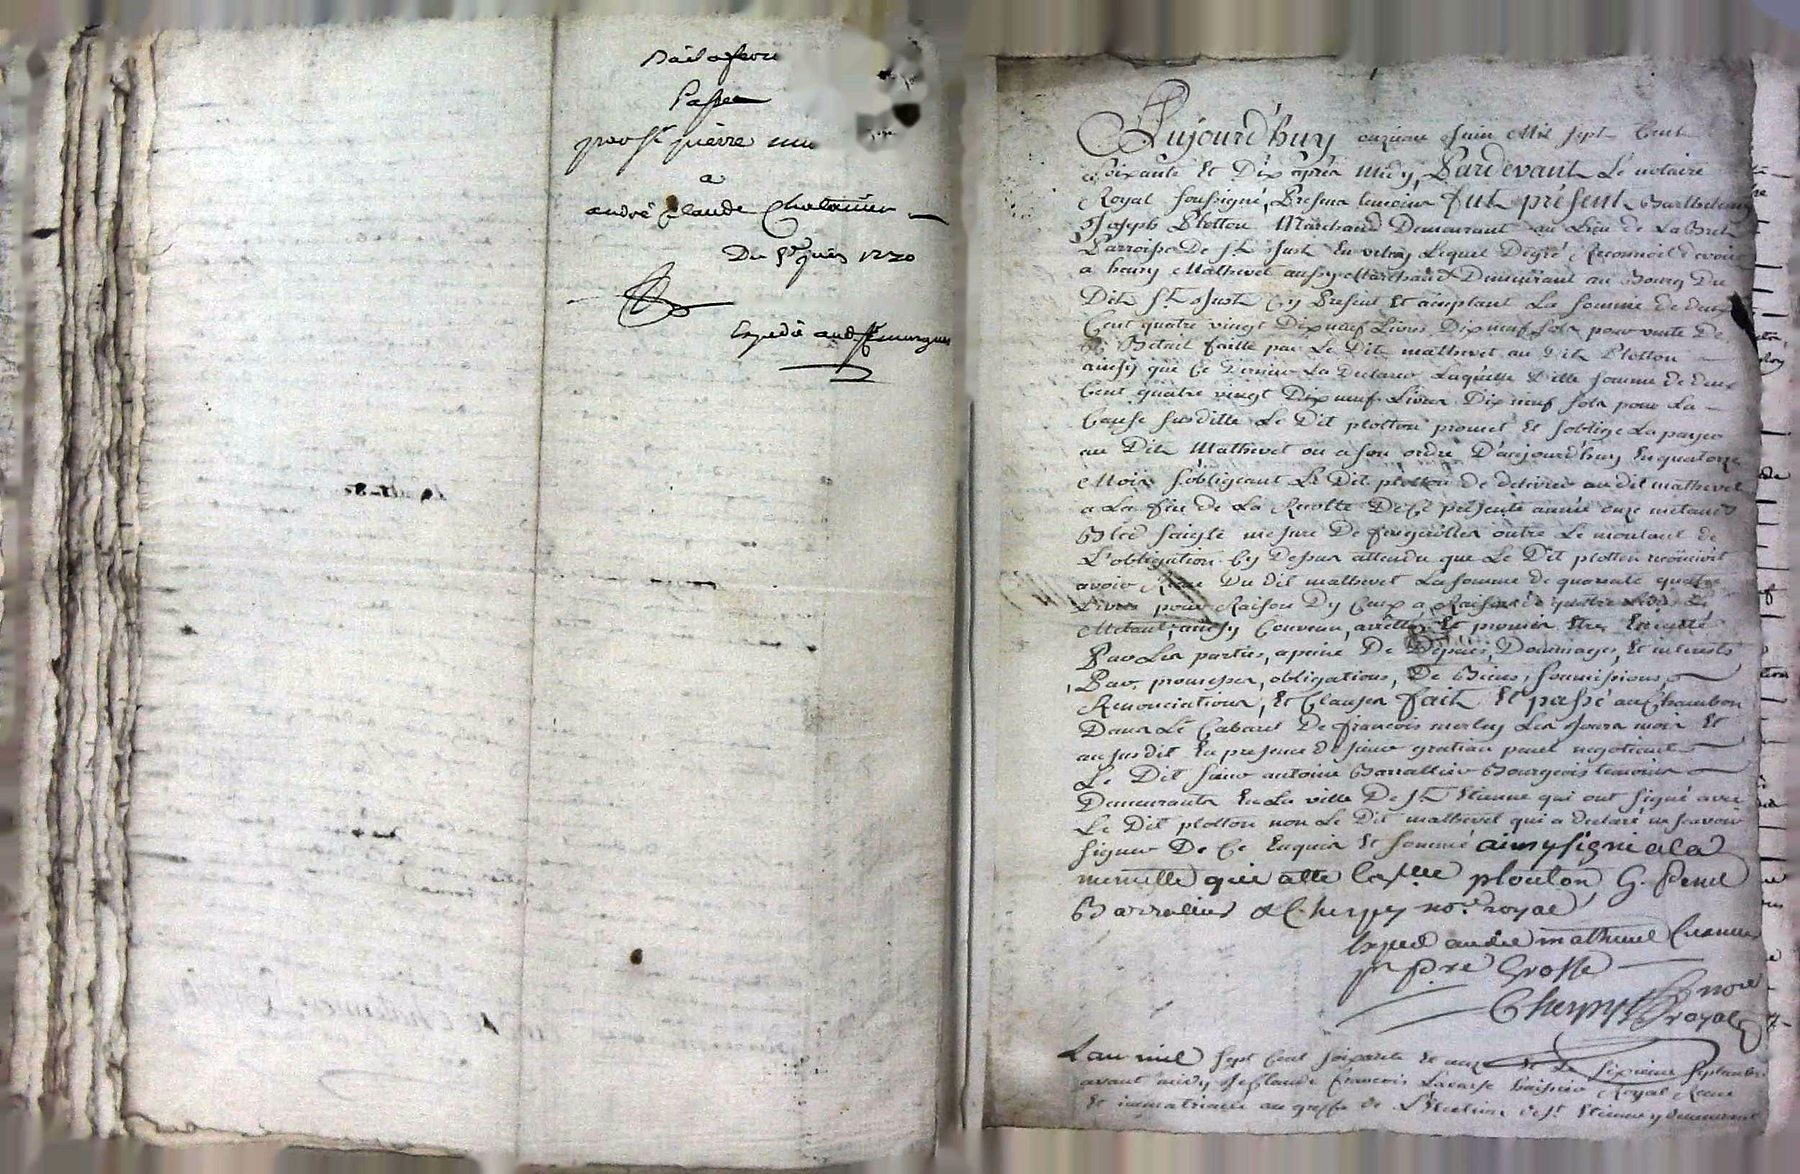 Bail a ferme
Passée
par Sr pierre
a
andré Claude Chatanier
Du 8e juin 1770
Expedié aud
Aujourdhuy onzieme Juin Mil sept Cent
soixante Et Dix après Midy, Pardevant Le notaire
Royal soussigné, Presens temoins fut présent Barthelemy
Joseph Plotton Marchand Demeurant au Lieu de La
Parroisse De St Just En velay Lequel De gré Reconnoit devoir
a heny Mathevet aussy Marchand Demeurant au Bourg Du
Dit St Just Cy Present Et acceptant La somme de deux
Cent quatre vingt Dix neuf Livres Dix neuf sols pour vente De
Betail faitte par Le Dit mathevet au Dit Plotton
ainsy que Ce Dernier La Declaré Laquelle Ditte somme de deux
Cent quatre vingt Dix neuf Livres Dix neuf sols pour La
Cause susditte Le Dit plotton promet Et soblige La payer
au Dit Mathevet ou a son ordre D'aujourdhuy En quatorze
Mois s'obligeant Le Dit plotton de delivrer au dit mathevet
a La fin de La Recolte De Ce présente année onze metans
Bled seigle mesure De feugerolles outre Le montant de
L'obligation Cy Dessus attendu que Le Dit plotton reconnoit
avoir Reçu Du dit mathevet La somme de quarante quatre
Livres pour Raison Dy Ceux a Raison de quatre Livres Le
Metant, ainsy Convenu, arretté Et promis Etre Executté
Par Les parties, a peine De Dépens, Dommages, Et interests
Par promesses, obligations, De Biens, soumissions
Renonciations, Et Clauses fait Et passé au Chambon
Dans Le Cabaret De francois merley Les Jours mois Et
an susdit En presence de sieur gratian penel negotiant
Le Dit sieur antoine Barrallier Bourgeois temoins
Demeurants En La ville De St Etienne qui ont signé avec
Le Dit plotton non Le Dit mathevet qui a declaré ne scavoir
signer De Ce Enquis Et sommé ainsy signé a la
minutte qui atte plouton G. Penel
Barralier & Cherpy nore royal
Exped audit mathevet
pr pre Grosse
Cherpy nore
royal
Lan mil sept Cent soixante Et onze Et Le sixieme septembre
avant midy Je Claude francois huissier Royal Reçu
Et immatriculé au greffe de L'Election de St Etienne y demeurant